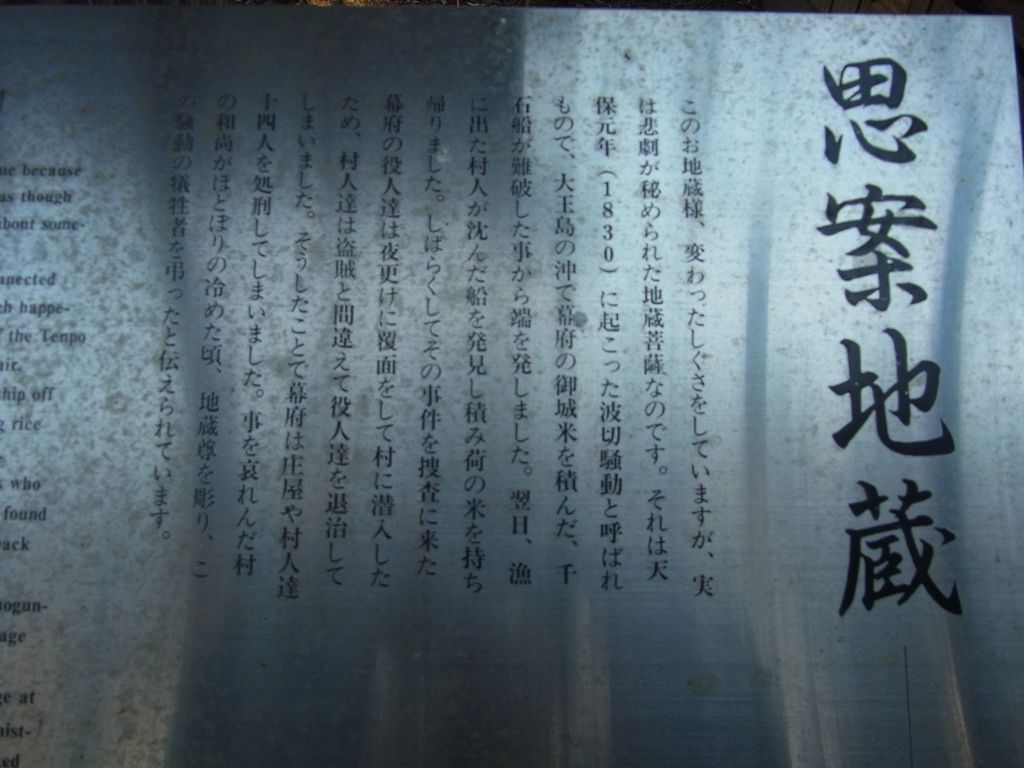 思案地蔵
このお地蔵様、変わったしぐさをしていますが、実
は悲劇が秘められた地蔵菩薩なのです。それは天
保元年(1830)に起こった波切騒動と呼ばれ
もので、大王島の沖で幕府の御城米を積んだ、千
石船が難破した事から端を発しました。翌日、漁
に出た村人が沈んだ船を発見し積み荷の米を持ち
帰りました。しばらくしてその事件を捜査に来た
幕府の役人達は夜更けに覆面をして村に潜入した
ため、村人達は盗賊と間違えて役人達を退治して
しまいました。そうしたことで幕府は庄屋や村人達
十四人を処刑してしまいました。事を哀れんだ村
の和尚がほとぼりの冷めた頃、地蔵尊を彫り、こ
の騒動の犠牲者を弔ったと伝えられています。
ue because
as though
about some-
nnected
ch happe-
f the Tenpo
air.
ship off
g rice
who
found
back
hogun-
age
ge at
nist-
ed